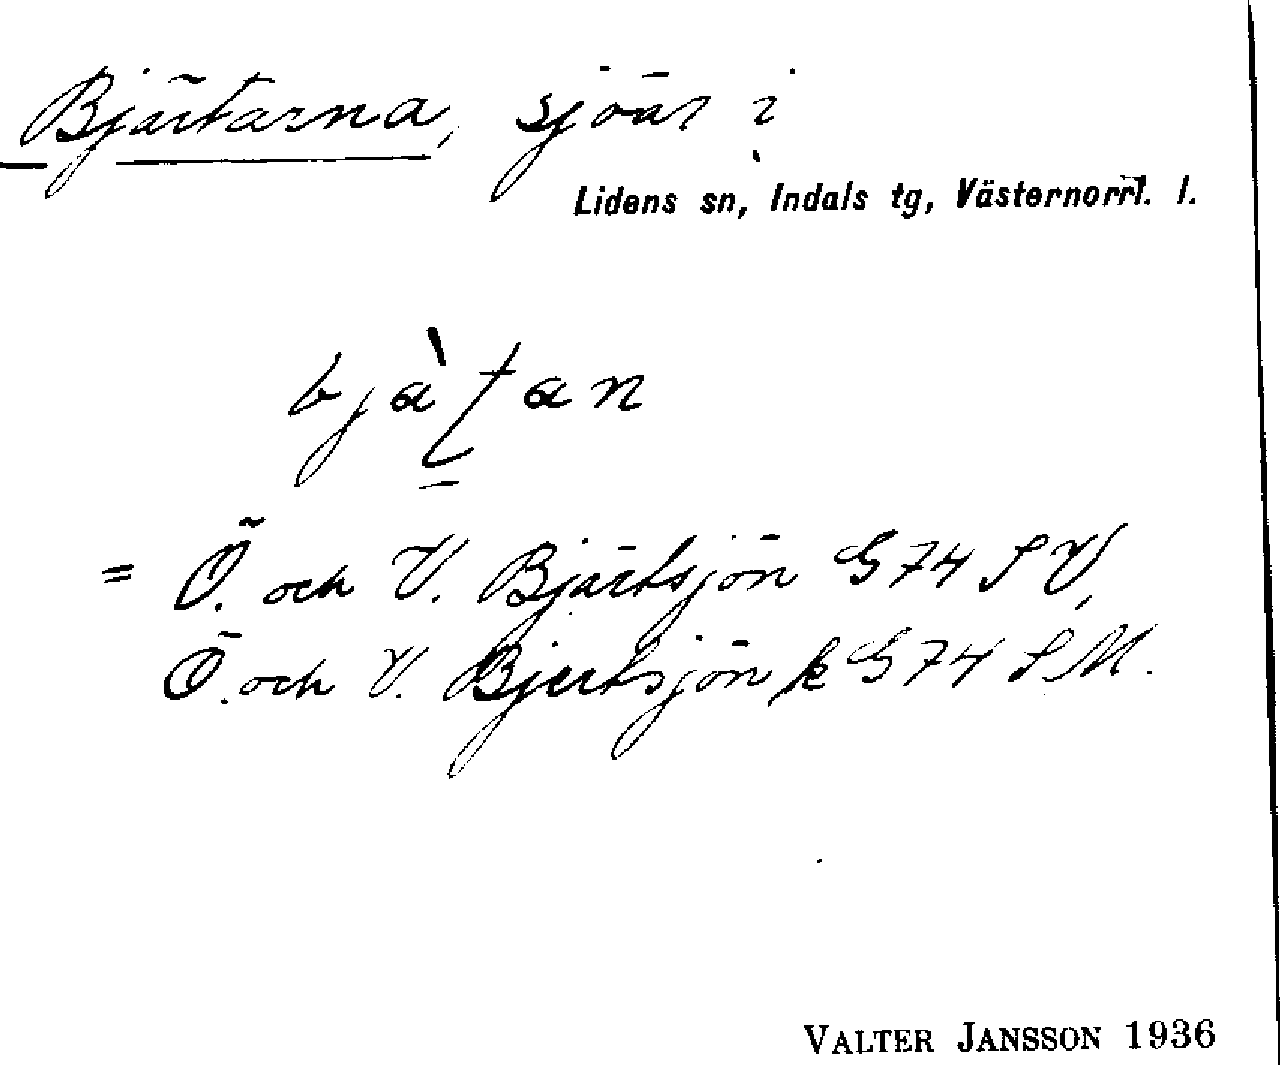 Bjärtarna, sjöar i
Lidens sn, Indals tg, Västernorrl. l.
bjàʈan
= Ö. och V. Bjärtsjön G74 SV,
Ö. och V. Bjertsjön k G74 SM.
VALTER JANSSON 1936